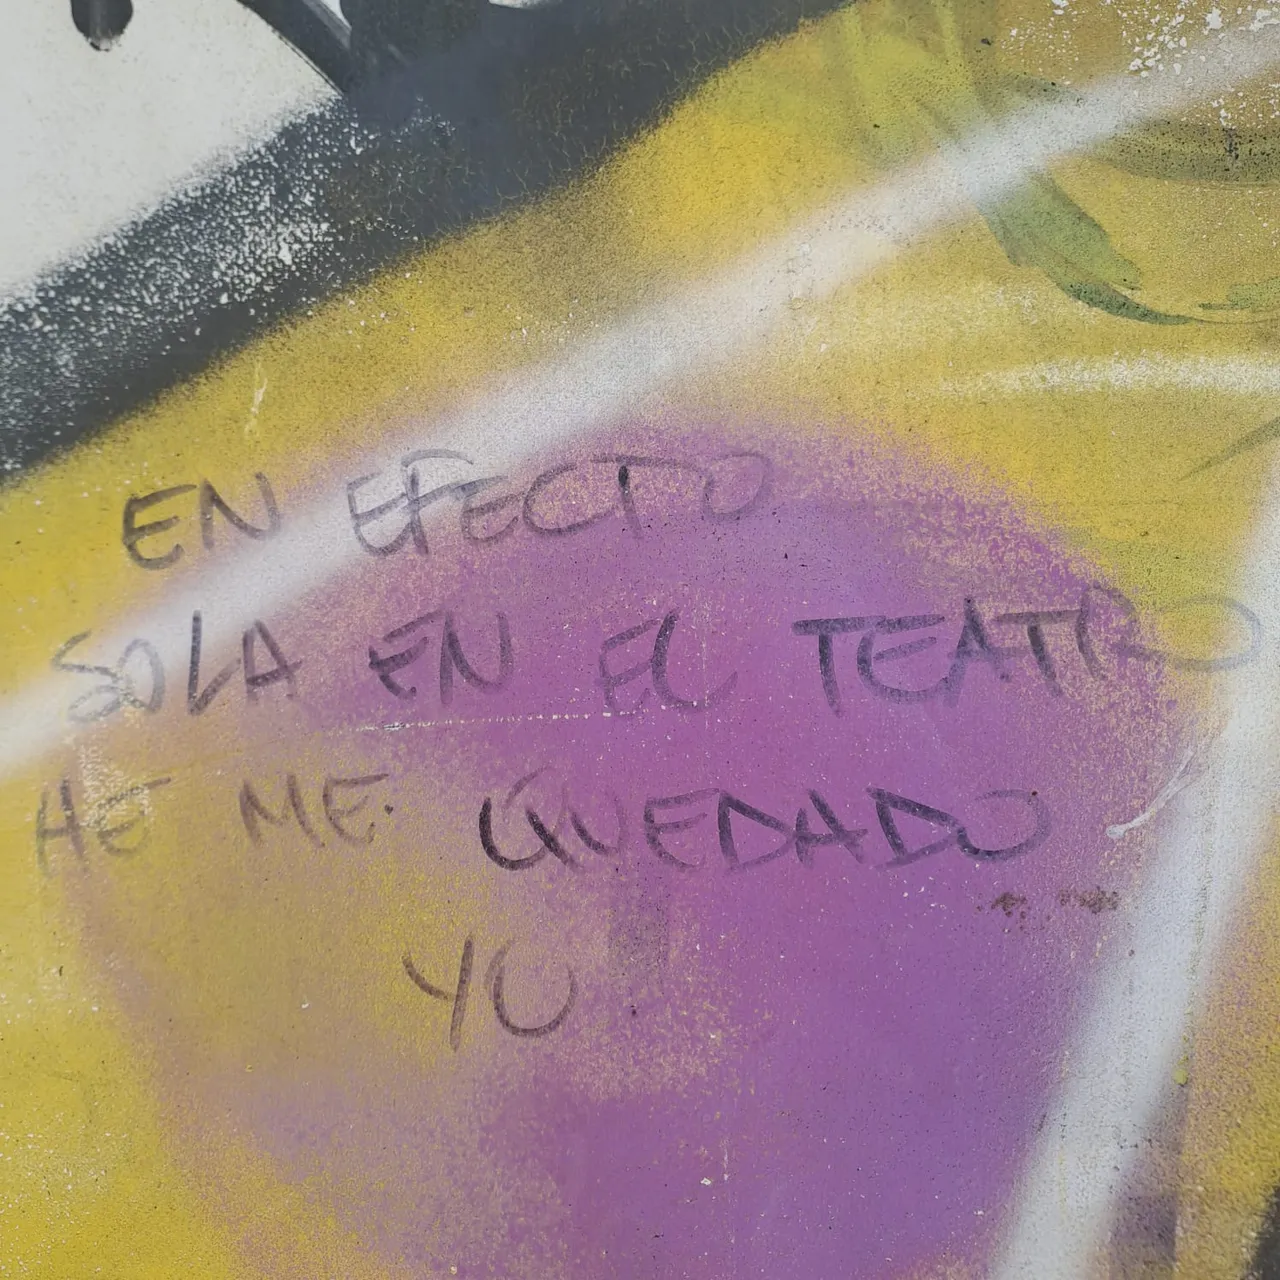 EN EFECTO
SOLA EN EL TEATRO
HE ME QUEDADO
YO